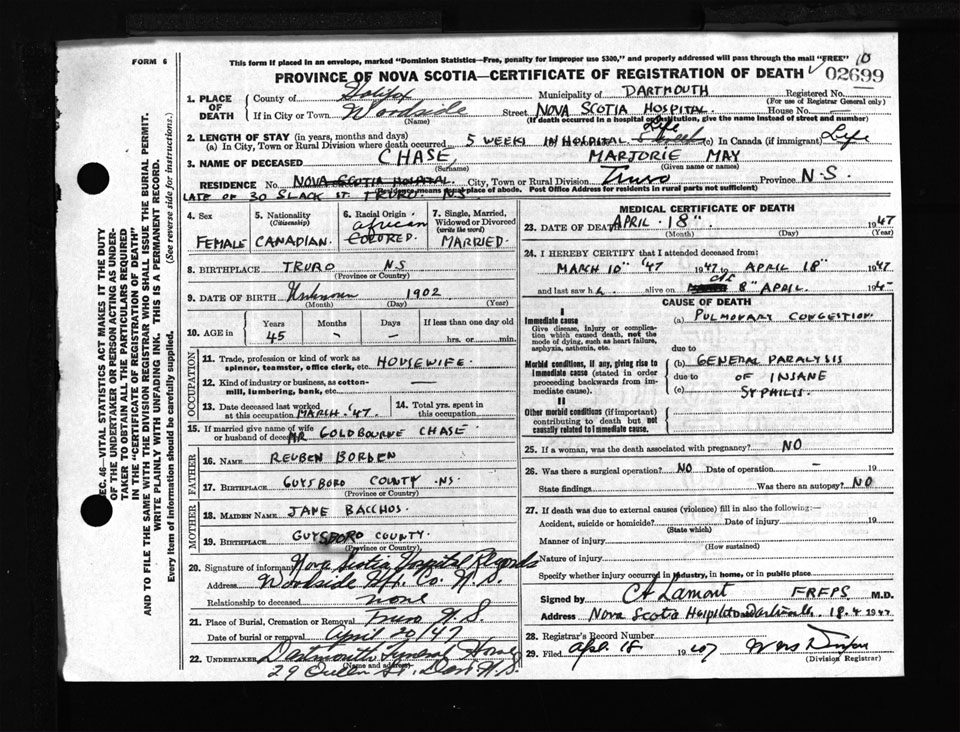 FORM 6
This form if placed in an envelope, marked "Dominion Statistics—Free, penalty for improper use $300," and properly addressed will pass through the mail "FREE"
10
PROVINCE OF NOVA SCOTIA—CERTIFICATE OF REGISTRATION OF DEATH
02699
1. PLACE OF DEATH
County of Halifax Municipality of DARTMOUTH Registered No.
(For use of Registrar General only)
If in City or Town Woodside Street NOVA SCOTIA HOSPITAL. House No. —
(Name) (If death occurred in a hospital or institution, give the name instead of street and number)
2. LENGTH OF STAY (in years, months and days)
(a) In City, Town or Rural Division where death occurred 5 WEEKS IN HOSPITAL Life (c) In Canada (if immigrant) Life
3. NAME OF DECEASED CHASE, MARJORIE MAY
(Surname) (Given name or names)
RESIDENCE No. NOVA SCOTIA HOSPITAL. City, Town or Rural Division Truro Province N.S.
(Residence means usual place of abode. Post Office Address for residents in rural parts not sufficient)
LATE OF 30 SLACK ST. TRURO. N.S.
4. Sex
FEMALE
5. Nationality
(Citizenship)
CANADIAN.
6. Racial Origin
African
COLORED.
7. Single, Married, Widowed or Divorced
(write the word)
MARRIED.
8. BIRTHPLACE TRURO N.S
(Province or Country)
9. DATE OF BIRTH Unknown 1902
(Month) (Day) (Year)
10. AGE in
Years Months Days If less than one day old
45 – – hrs. or min.
OCCUPATION
11. Trade, profession or kind of work as spinner, teamster, office clerk, etc. HOUSEWIFE.
12. Kind of industry or business, as cotton-mill, lumbering, bank, etc. —
13. Date deceased last worked at this occupation MARCH. '47.
14. Total yrs. spent in this occupation
15. If married give name of wife or husband of deceased MR GOLDBOURNE CHASE.
FATHER
16. NAME REUBEN BORDEN
17. BIRTHPLACE GUYSBORO COUNTY .NS.
(Province or Country)
MOTHER
18. MAIDEN NAME JANE BACCHOS.
19. BIRTHPLACE GUYSBORO COUNTY.
(Province or Country)
20. Signature of informant Nova Scotia Hospital Records
Address Woodside Hfx. Co. N.S.
Relationship to deceased none
21. Place of Burial, Cremation or Removal Truro N.S.
Date of burial or removal April 20/47
22. UNDERTAKER Dartmouth Funeral Home
(Name and address)
29 Queen St. Dart N.S.
MEDICAL CERTIFICATE OF DEATH
23. DATE OF DEATH APRIL. 18" 1947
(Month) (Day) (Year)
24. I HEREBY CERTIFY that I attended deceased from:
MARCH 10" '47 1947 to APRIL 18" 1947
and last saw h alive on 8" APRIL. 194
CAUSE OF DEATH
I
Immediate cause
Give disease, injury or complication which caused death, not the mode of dying, such as heart failure, asphyxia, asthenia, etc.
(a) PULMONARY CONGESTION.
due to
Morbid conditions, if any, giving rise to immediate cause (stated in order proceeding backwards from immediate cause).
(b) GENERAL PARALYSIS
due to OF INSANE
(c) SYPHILIS.
II
Other morbid conditions (if important) contributing to death but not causally related to immediate cause.
25. If a woman, was the death associated with pregnancy? NO
26. Was there a surgical operation? NO Date of operation – 19
State findings Was there an autopsy? NO
27. If death was due to external causes (violence) fill in also the following:—
Accident, suicide or homicide? Date of injury 19
(State which)
Manner of injury
(How sustained)
Nature of injury
Specify whether injury occurred in industry, in home, or in public place
Signed by CA Lamont FRFPS M.D.
Address Nova Scotia Hospital Dartmouth. 18.4.1947.
28. Registrar's Record Number
29. Filed Apl. 18 1947
(Division Registrar)
SEC. 46—VITAL STATISTICS ACT MAKES IT THE DUTY OF THE UNDERTAKER OR PERSON ACTING AS UNDERTAKER TO OBTAIN ALL THE PARTICULARS REQUIRED IN THE "CERTIFICATE OF REGISTRATION OF DEATH" AND TO FILE THE SAME WITH THE DIVISION REGISTRAR WHO SHALL ISSUE THE BURIAL PERMIT.
WRITE PLAINLY WITH UNFADING INK. THIS IS A PERMANENT RECORD.
Every item of information should be carefully supplied. (See reverse side for instructions.)